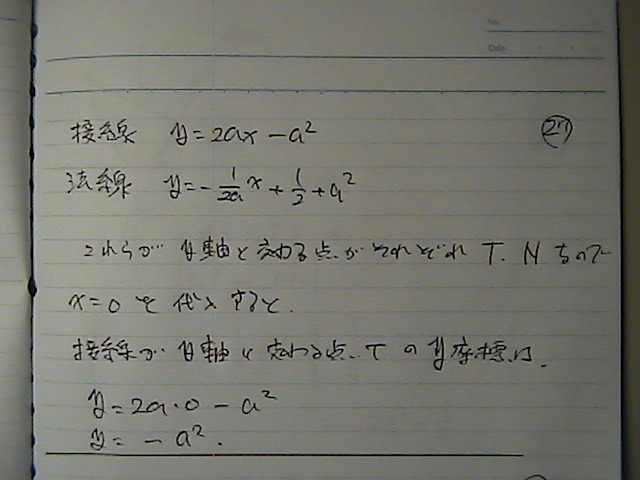 No.
Date
27
接線 y=2ax-a²
法線 y=-1/2a x+1/2+a²
これらが y軸と交わる点がそれぞれ T. N なので
x=0 を代入すると.
接線が y軸と交わる点. T の y座標は.
y=2a·0-a²
y= -a².